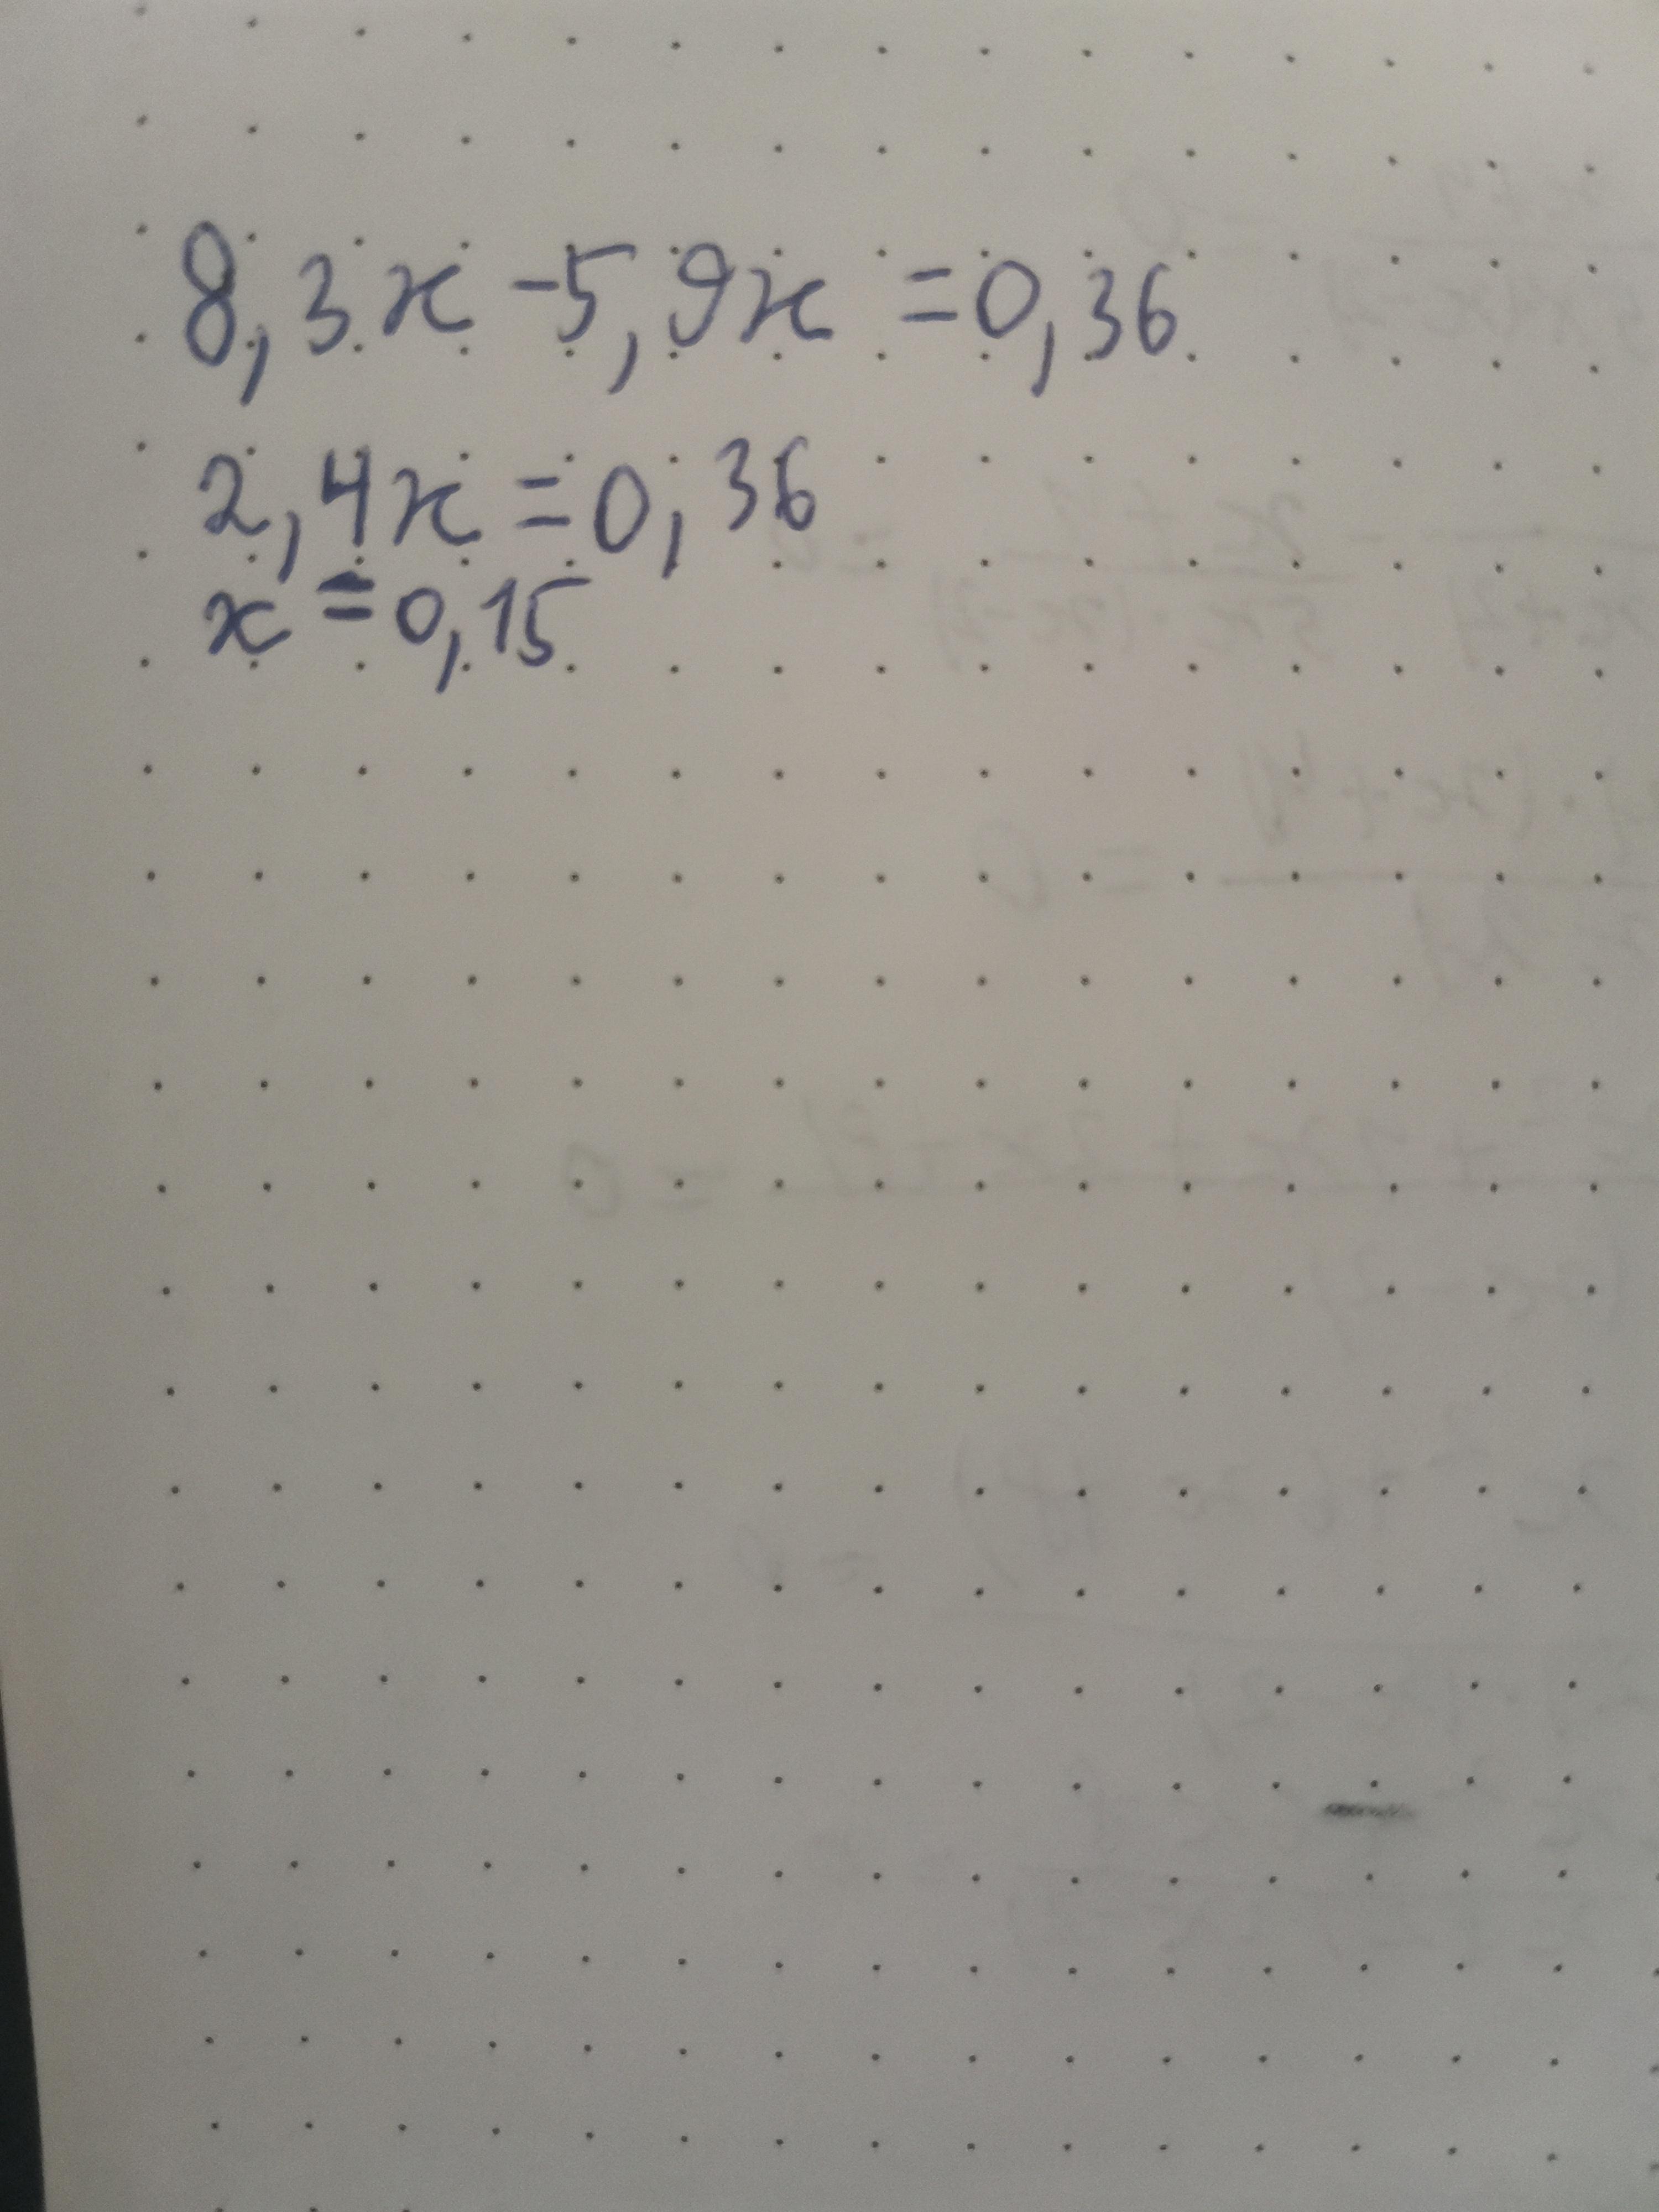 8,3x-5,9x=0,36
2,4x=0,36
x=0,15